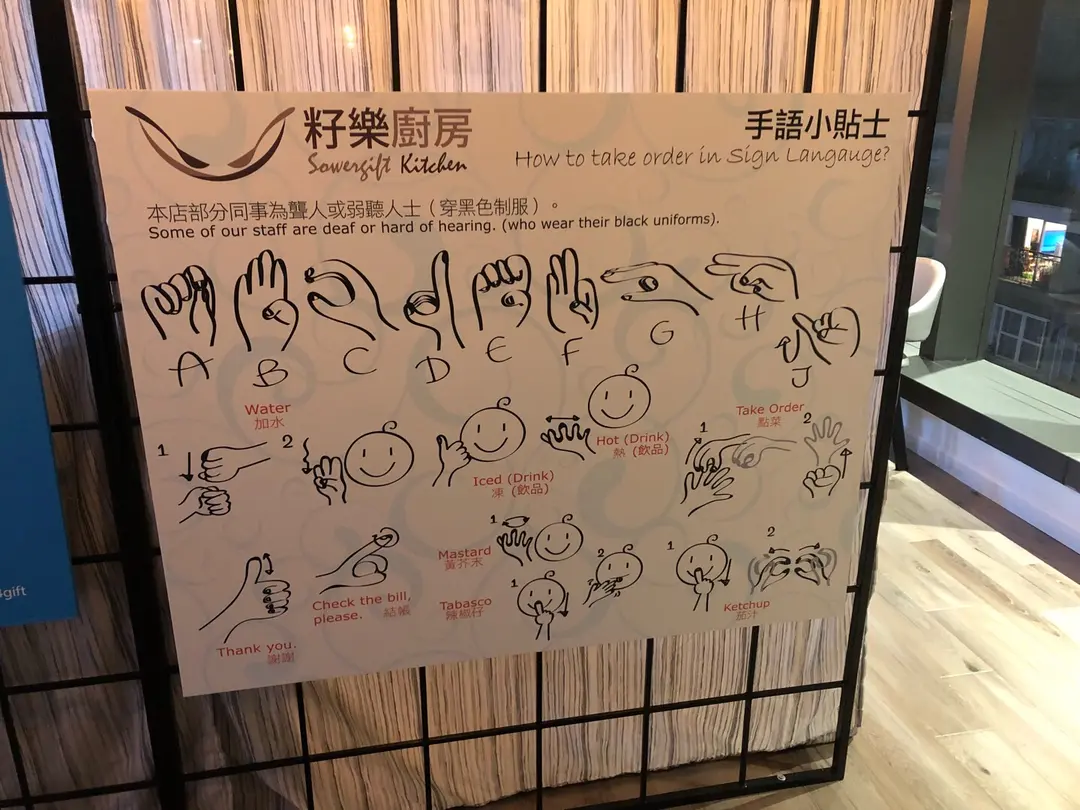 籽樂廚房
Sowergift Kitchen
手語小貼士
How to take order in Sign Langauge?
本店部分同事為聾人或弱聽人士（穿黑色制服）。
Some of our staff are deaf or hard of hearing. (who wear their black uniforms).
A B C D E F G H J
Water
加水
1 2
Iced (Drink)
凍 (飲品)
Hot (Drink)
熱 (飲品)
Take Order
點菜
1 2
Thank you.
謝謝
Check the bill,
please. 結賬
Mastard
黃芥末
1
Tabasco
辣椒仔
1 2
Ketchup
茄汁
1 2
gift